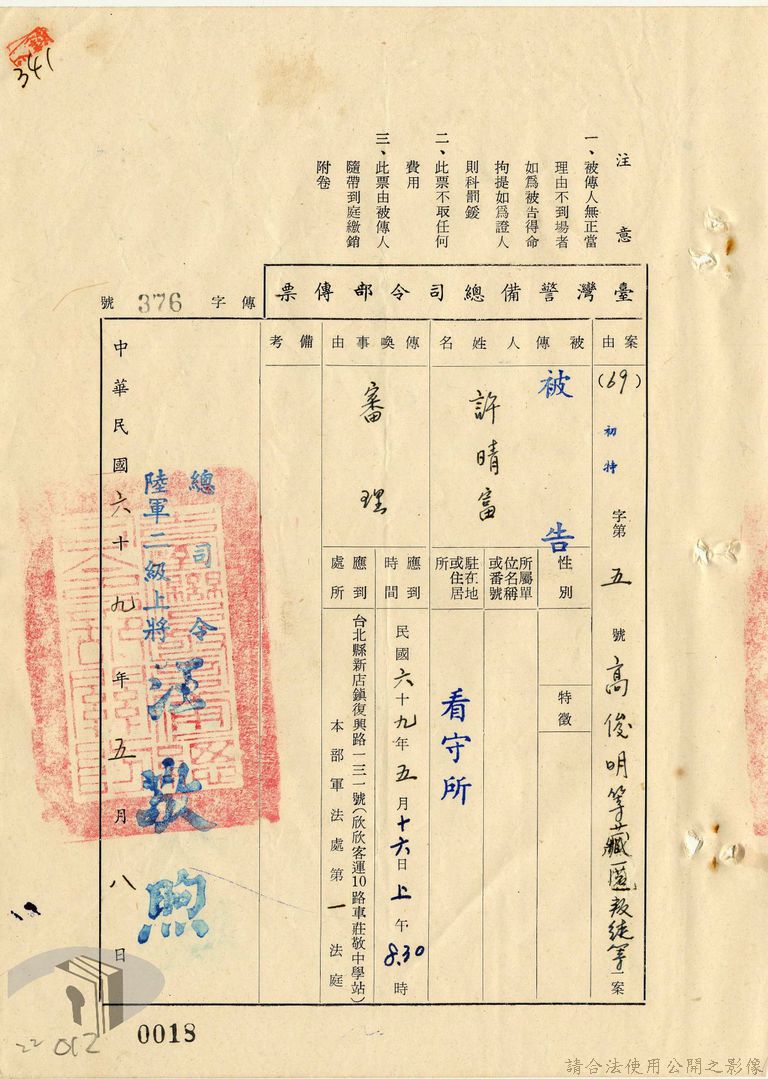 341
注意
一、被傳人無正當
理由不到場者
如爲被告得命
拘提如爲證人
則科罰鍰
二、此票不取任何
費用
三、此票由被傳人
隨帶到庭繳銷
附卷
臺灣警備總司令部傳票
傳字376號
案由
(69)初特字第五號高俊明等藏匿叛徒等一案
被傳人姓名
被告
許晴富
性別
特徵
所屬單
位名稱
或番號
駐在地
或住居
所
看守所
傳喚事由
審理
應到
時間
民國六十九年五月十六日上午8.30時
應到
處所
台北縣新店鎮復興路一三一號(欣欣客運10路車莊敬中學站)
本部軍法處第一法庭
備考
總司令
陸軍二級上將汪敬煦
中華民國六十九年五月八日
0018
22
012
請合法使用公開之影像